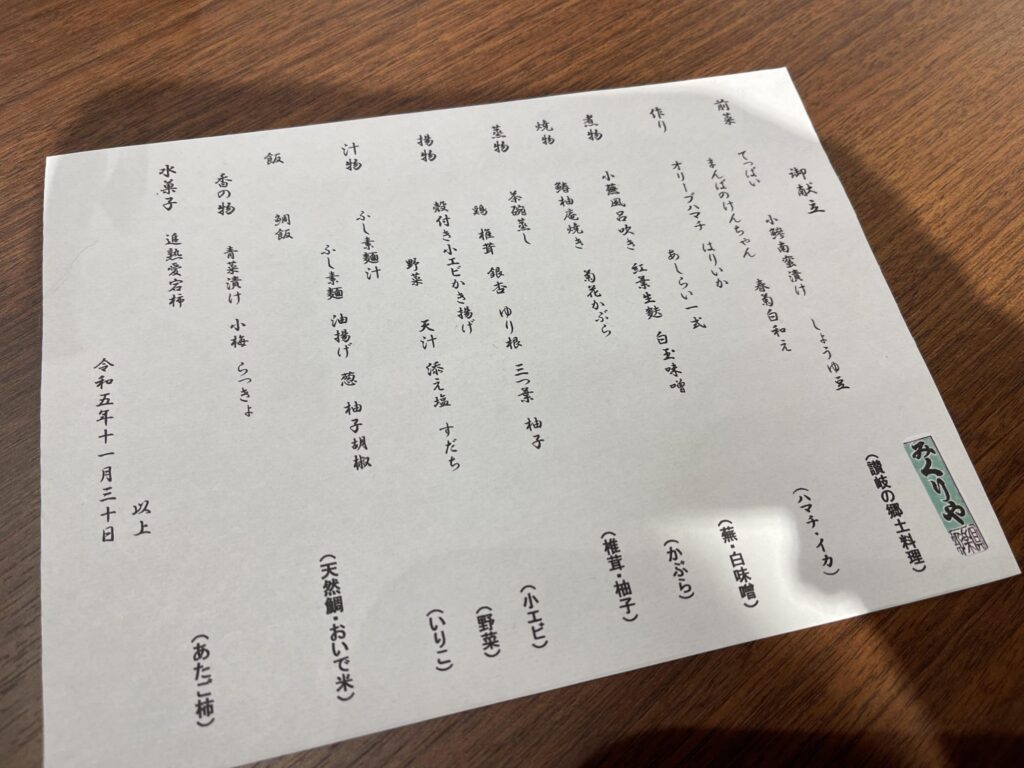 みくりや
御献立
前菜
てっぱい 小鰺南蛮漬け しょうゆ豆 (讃岐の郷土料理)
まんばのけんちゃん 春菊白和え
作り
オリーブハマチ はりいか (ハマチ・イカ)
あしらい一式
煮物
小蕪風呂吹き 紅葉生麩 白玉味噌 (蕪・白味噌)
焼物
鰆柚庵焼き 菊花かぶら (かぶら)
蒸物
茶碗蒸し
鶏 椎茸 銀杏 ゆり根 三つ葉 柚子 (椎茸・柚子)
揚物
殻付き小エビかき揚げ (小エビ)
野菜 天汁 添え塩 すだち (野菜)
汁物
ふし素麺汁
ふし素麺 油揚げ 葱 柚子胡椒 (いりこ)
飯
鯛飯 (天然鯛・おいで米)
香の物
青菜漬け 小梅 らっきょ
水菓子 追熟愛宕柿 (あたご柿)
以上
令和五年十一月三十日